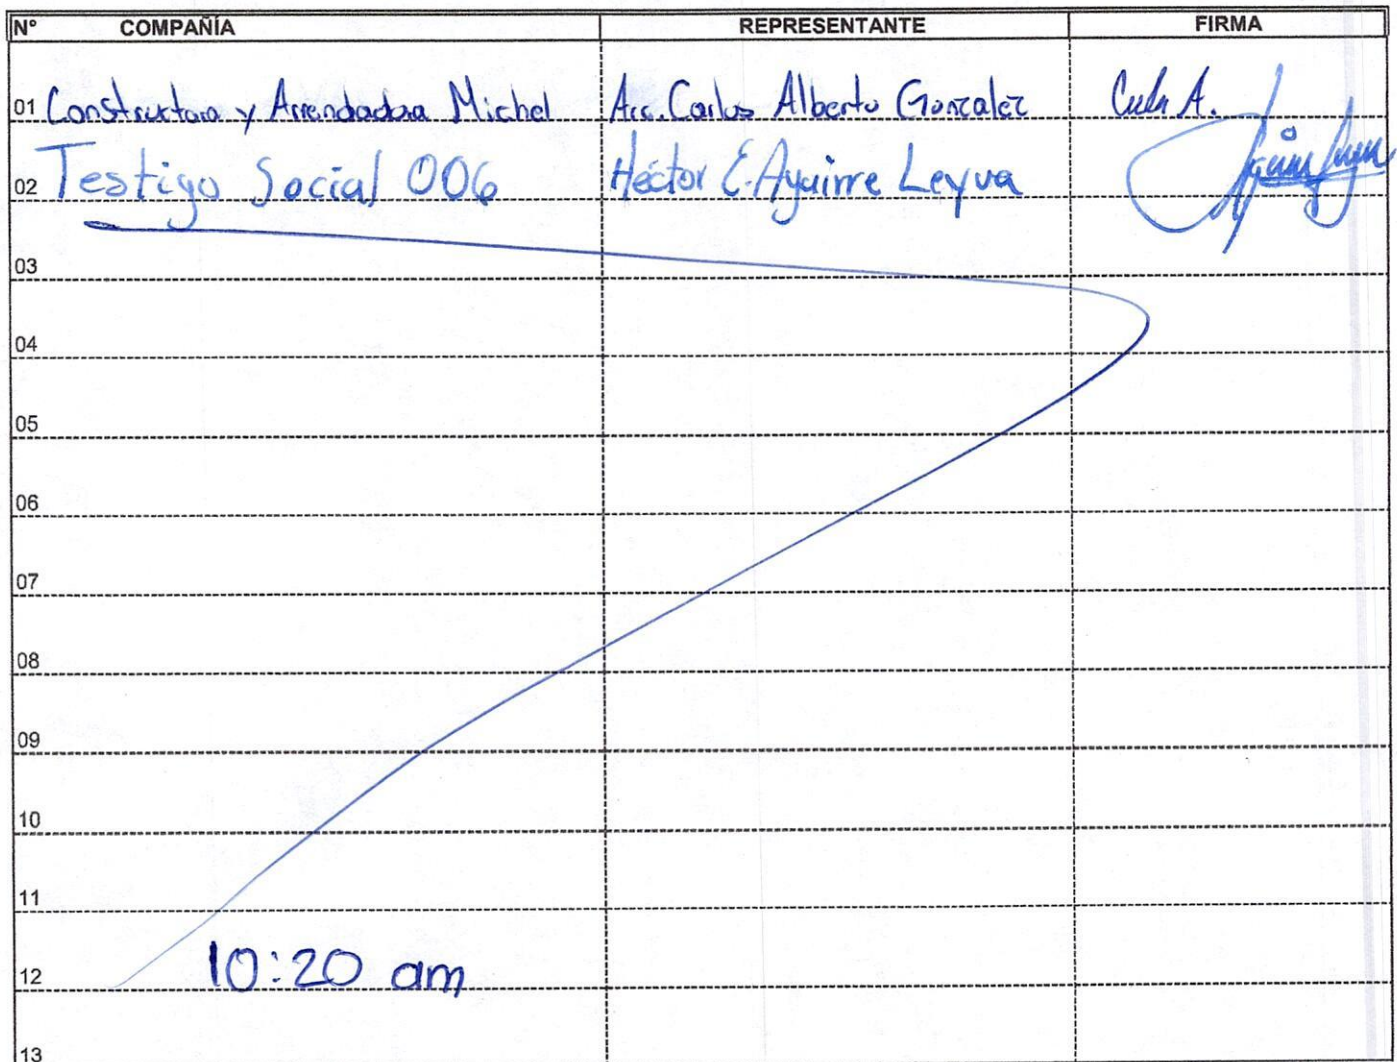 N° COMPAÑÍA REPRESENTANTE FIRMA
01 Constructora y Arrendadora Michel Arc. Carlos Alberto Gonzalez
02 Testigo Social 006 Héctor E. Aguirre Leyva
03
04
05
06
07
08
09
10
11
10:20 am
12
13